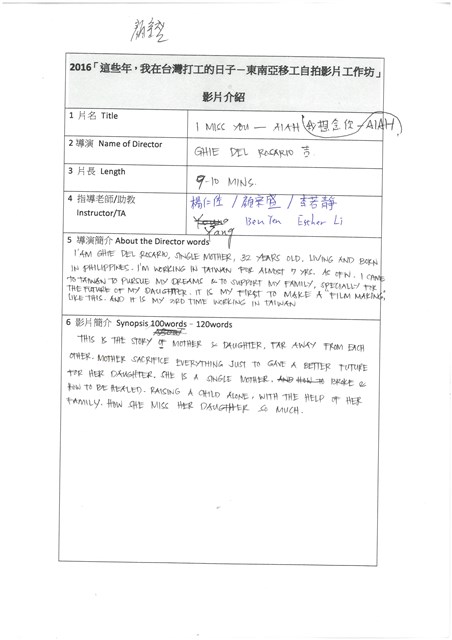 2016「這些年，我在台灣打工的日子－東南亞移工自拍影片工作坊」
影片介紹
1 片名 Title
I MISS YOU — AIAH (我想念你 - AIAH)
2 導演 Name of Director
GHIE DEL ROSARIO
3 片長 Length
9-10 MINS.
4 指導老師/助教
Instructor/TA
楊仁佐 / 顧宗盛 / 李若靜
Yang Ben Yen Esther Li
5 導演簡介 About the Director words
I'AM GHIE DEL ROSARIO, SINGLE MOTHER, 32 YEARS OLD. LIVING AND BORN
IN PHILIPPINES. I'M WORKING IN TAIWAN FOR ALMOST 7 YRS. AS OFN. I CAME
TO TAIWAN TO PURSUE MY DREAMS & TO SUPPORT MY FAMILY, SPECIALLY FOR
THE FUTURE OF MY DAUGHTER. IT IS MY FIRST TO MAKE A "FILM MAKING,
LIKE THIS. AND IT IS MY 2RD TIME WORKING IN TAIWAN
6 影片簡介 Synopsis 100words – 120words
THIS IS THE STORY OF MOTHER & DAUGHTER, FAR AWAY FROM EACH
OTHER. MOTHER SACRIFICE EVERYTHING JUST TO GAVE A BETTER FUTURE
FOR HER DAUGHTER. SHE IS A SINGLE MOTHER. AND HOW TO BROKE &
HOW TO BE HEALED. RAISING A CHILD ALONE, WITH THE HELP OF HER
FAMILY. HOW SHE MISS HER DAUGHTER SO MUCH.